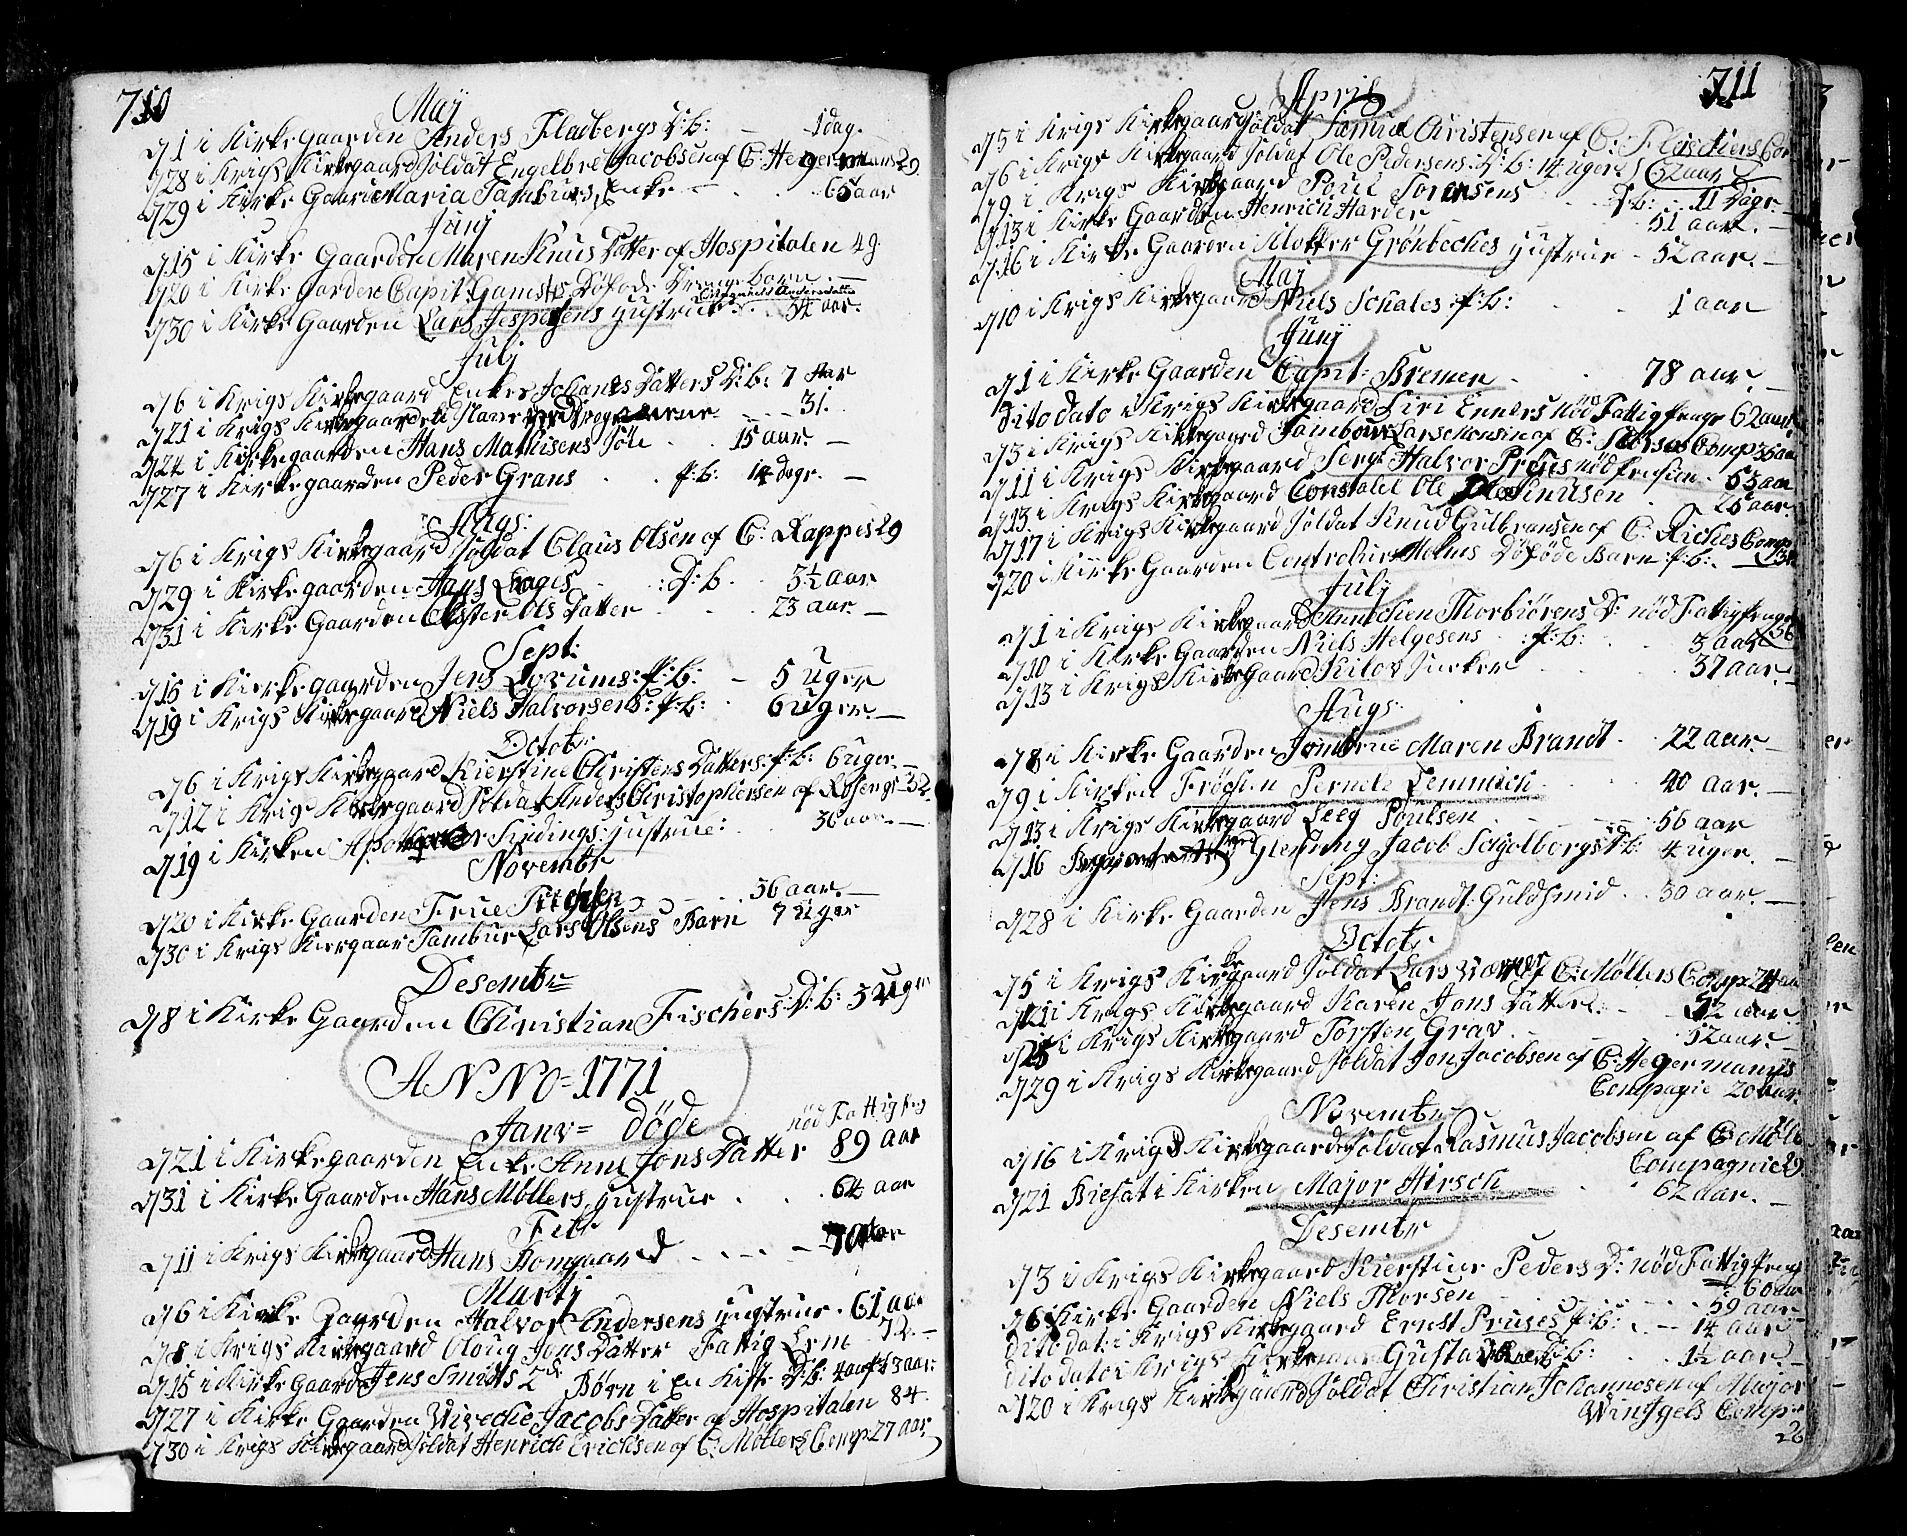 710
Maÿ
d 1 i Kirke Gaarden Anders Fladbergs D: b: – 1 dag.
d 28 i Krigs Kirkegaard Soldat Engelbret Jacobsen af C: Hegermans 29
d 29 i Kirke Gaard Maria Tamburs Enke – 65 aar
Junj
d 15 i Kirke Gaarden Maren Knus Datter af Hospitalen 49.
d 20 i Kirke Garden Capit: Döfode Drenge barn
d 30 i Kirke Gaarden Lars Jespersens Hustrue 34 aar.
Julj
d 6 i Krigs Kirkegaard Enkes Johanes Datters D: b: 7 aar
d 21 i Krigs Kirkegaarden 31.
d 24 i Kirkegaarden Hans Mathisens 15 aar. –
d 27 i Kirkegaarden Peder Grans f: b: 14 dage. –
Augs:
d 6 i Krigs Kirkegaard Soldat Claus Olsen af C: Rappes 29
d 29 i Kirkegaarden Hans D: b. 3½ aar
d 31 i Kirke Gaarden Ols Datter 23 aar –
Sept:
d 15 i Kierkegaarden Jens f: b: – 5 Uger
d 19 i Krigs Kirkegaard Niels Halvorsens: f: b: 6 uger. –
Octobr
d 6 i Krigs Kirkegaard Kierstine Christens Datters: f: b: 6 uger. –
d 12 i Krigs Kirkegaard Soldat Anders Christophersen af 32.
d 19 i Kirken Apotheker Sidings: Hustrue: 36 aar. –
Novembr
d 20 i Kirke Gaarden Frue 56 aar. –
d 30 i Krigs Kiergaar Tambur Lars Olsens Barn 7 Uger
Desembr
d 8 i Kirke Gaarden Christian Fischers: D: b: 5 Uger
ANNO = 1771
Janv = döde
nöd Fattig
d 21 i Kirkegaarden Enke Anne Jons Datter 89 aar
d 31 i Kirke Gaarden Hans Möllers Hustrue 64 aar
Febr
d 11 i Krigs Kirkegaard Hans
Martj
d 6 i Kirke Gaarden Halvor Andersens Hustrue 61 aar
d 8 i Krigs Kirkegaard Oloug Jons Datter Fattig Lem 72. –
d 15 i Kirke Gaard Jens Smids 2de Börn i En Kiste D: b: 3 aar:
d 27 i Kirke Gaarden Wiveche Jacobs Datter af Hospitalen 84.
d 30 i Krigs Kirkegaard Soldat Henrich Erichsen af C: Möllers Comp: 27 aar
711
April
d 5 i Krigs Kirkegaard Soldat Samuel Christensen af C: Fleischers Com
d 6 i Krigs Kirkegaard Soldat Ole Pedersens: D: b: 14 uger 62 aar
d 9 i Krigs Kirkegaard Poul Sorensens D: b: 11 Dage. –
d 13 i Kirke Gaarden Henrich Harder 51 aar. –
d 16 i Kirke Gaarden Klokker Grönbeches Hustrue – 52 aar. –
Maj
d 10 i Krigs Kirkegaard Niels Schales: f: b: 1 aar
Junÿ
d 1 i Kirke Gaarden Capit: Bremer 78 aar. –
dito dato i Krigs Kirkegaard Siri Enners nöd Fattigpenge 62 aar
d 3 i Krigs Kirkegaard Tambour Lars Monsin af C: Comp: 36 aar
d 11 i Krigs Kirkegaard Sergt: Halvor nöd Pension – 53 aar
d 13 i Krigs Kirkegaard Constabel Ole Knusen 26 aar.
d 17 i Krigs Kirkegaard Soldat Knud Gulbransen af C: Riches Comp
d 20 i Kirke Gaarden Controleur Holms Döföde Barn f: b:
Julj
d 1 i Krigs Kirkegaard Annichen Thorbiörens D: nöd Fattigpenge 56
d 10 i Kirke Gaarden Niels Helgesens : f: b: 3 aar
d 13 i Krigs Kirkegaard Junker 37 aar. –
Augs:
d 8 i Kirke Gaarden Jomfrue Maren Brandt 22 aar. –
d 9 i Kirken Fröchen Pernele Lemmich 40 aar. –
d 13 i Krigs Kirkegaard Seeg Poulsen 56 aar
d 16 ved Glemming Jacob Schielborgs D: b: 4 uger. –
Sept:
d 28 i Kirke Gaarden Jens Brandt Guldsmid 30 aar. –
Octobr
d 5 i Krigs Kirkegaard Soldat Lars af C: Möllers Comp: 24 aar
d 11 i Krigs Kirkegaard Karen Jons Datter: – 52 aar.
d 25 i Krigs Kirkegaard Torsten Grav – 52 aar. –
d 29 i Krigs Kirkegaard Soldat Jon Jacobsen af C: Hegermanns
Compagie 20 aar.
Novembr
d 16 i Krigs Kirkegaard Soldat Rasmus Jacobsen af C: Mölle
Compagnie 29.
d 21 Biesat i Kirken Major Hirsch 62 aar. –
Desembr
d 3 i Krigs Kirkegaard Kierstine Peders D: nöd Fattigpeng
60 aar
d 6 i Kirke Gaarden Niels Thorsen 59 aar
dito dat: i Krigs Kirkegaard Ernst Pruses f: b: – 14 aar
dito dato i Krigs Kirkegaar Gustav b: 1½ aar. –
d 20 i Krigs Kirkegaard Soldat Christian Johannesen af Major
Comp:
26